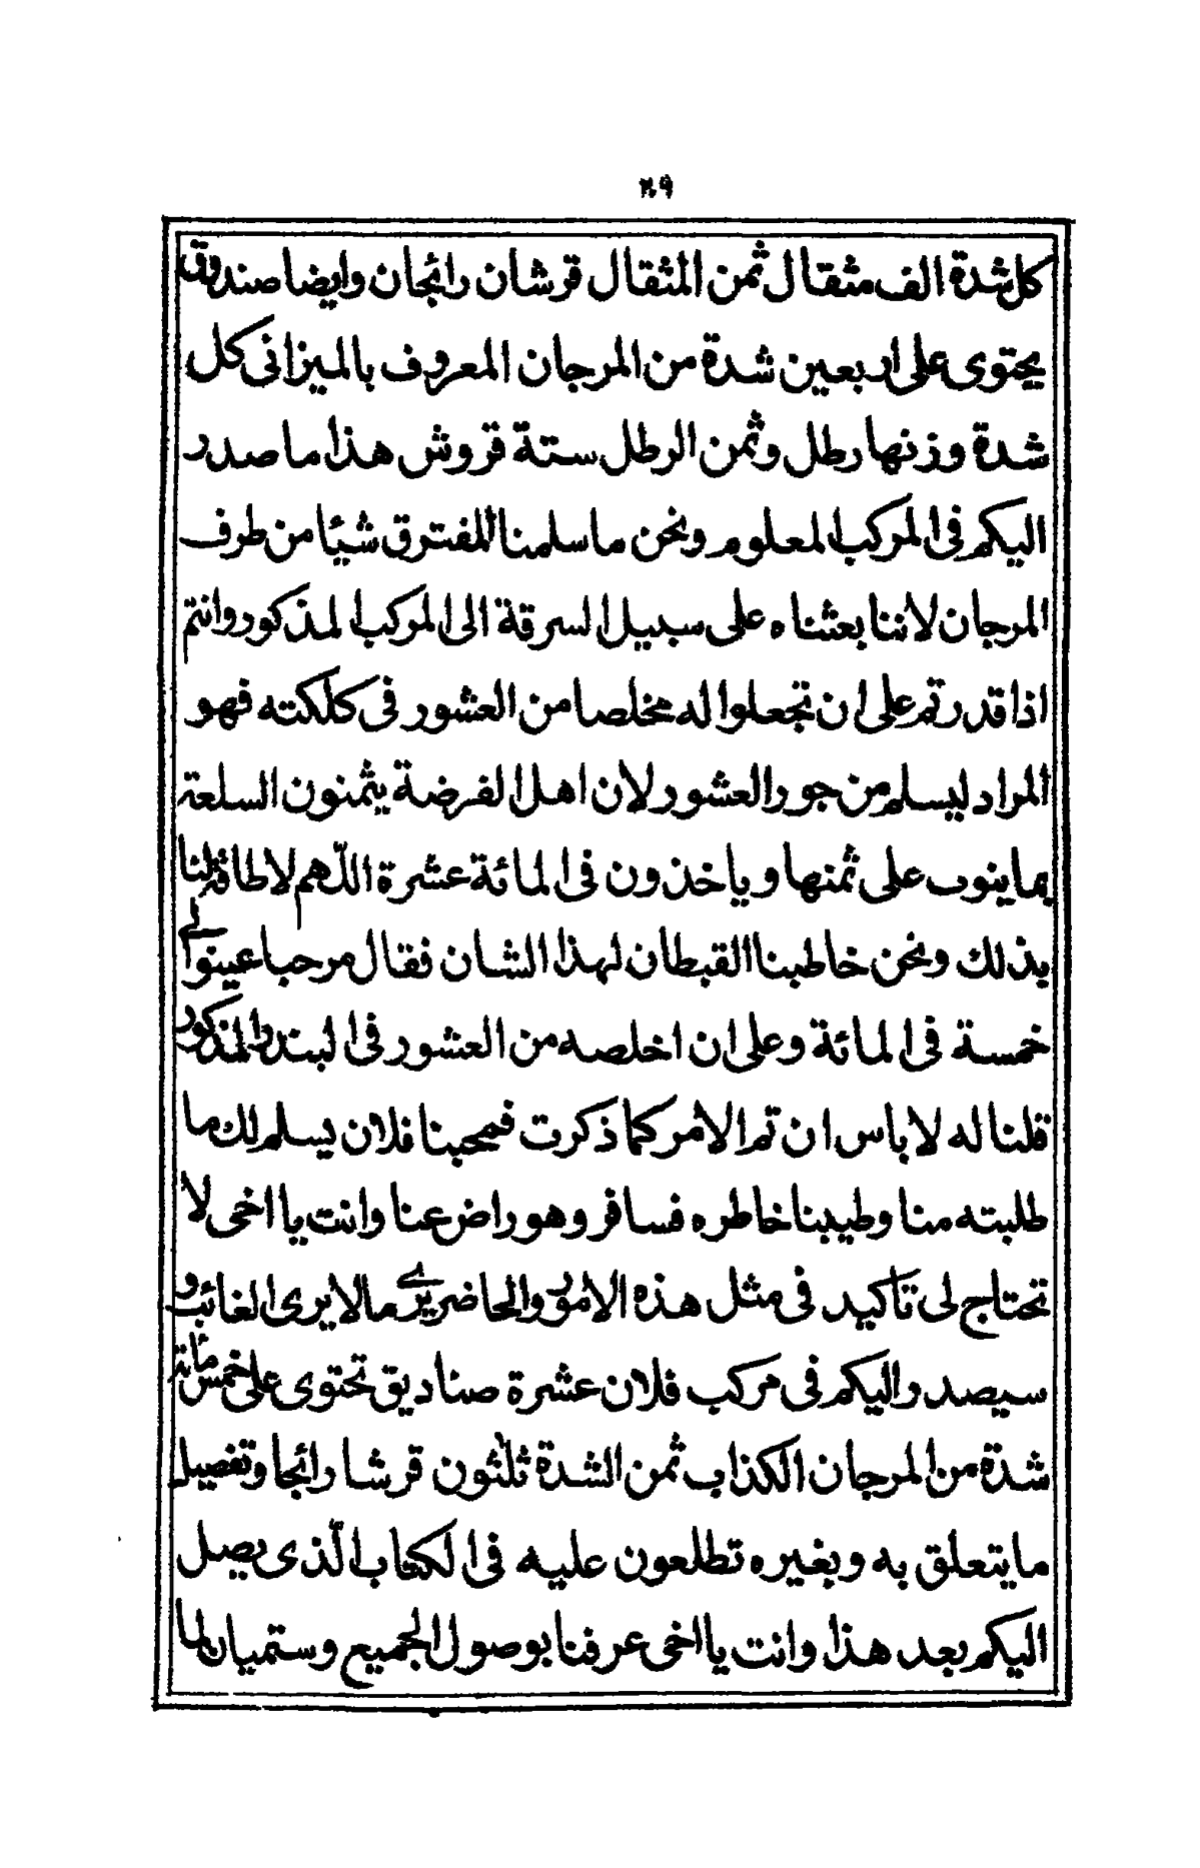 ٤٩
كل شدة الف مثقال ثمن المثقال قرشان رائجان وايضا صندوق
يحتوى على اربعين شدة من المرجان المعروف بالميزانى كل
شدة وزنها رطل وثمن الرطل ستة قروش هذا ما صدر
اليكم فى المركب المعلوم ونحن ما سلمنا للمفترق شيًا من طرف
المرجان لاننا بعثناه على سبيل السرقة الى المركب المذكور وانتم
اذا قدرتم على ان تجعلوا له مخلصا من العشور فى كلكته فهو
المراد ليسلم من جور العشور لان اهل الفرضة يثمنون السلعة
بما ينوب على ثمنها وياخذون فى المائة عشرة اللّهم لا طاقة لنا
بذلك ونحن خاطبنا القبطان لهذا الشان فقال مرحبا عينوا لى
خمسة فى المائة وعلى ان اخلصه من العشور فى البندر المذكور
قلنا له لا باس ان تم الامر كما ذكرت فمحبنا فلان يسلم لك ما
طلبته منا وطيبنا خاطره فسافر وهو راض عنا وانت يا اخى لا
تحتاج لى تأكيد فى مثل هذه الامور والحاضر يرى ما لا يرى الغائب و
سيصدر اليكم فى مركب فلان عشرة صناديق تحتوى على خمس مائة
شدة من المرجان الكذاب ثمن الشدة ثلثون قرشا رائجا وتفصيل
ما يتعلق به وبغيره تطلعون عليه فى الكتاب الّذى يصل
اليكم بعد هذا وانت يا اخى عرفنا بوصول الجميع وستميان لما